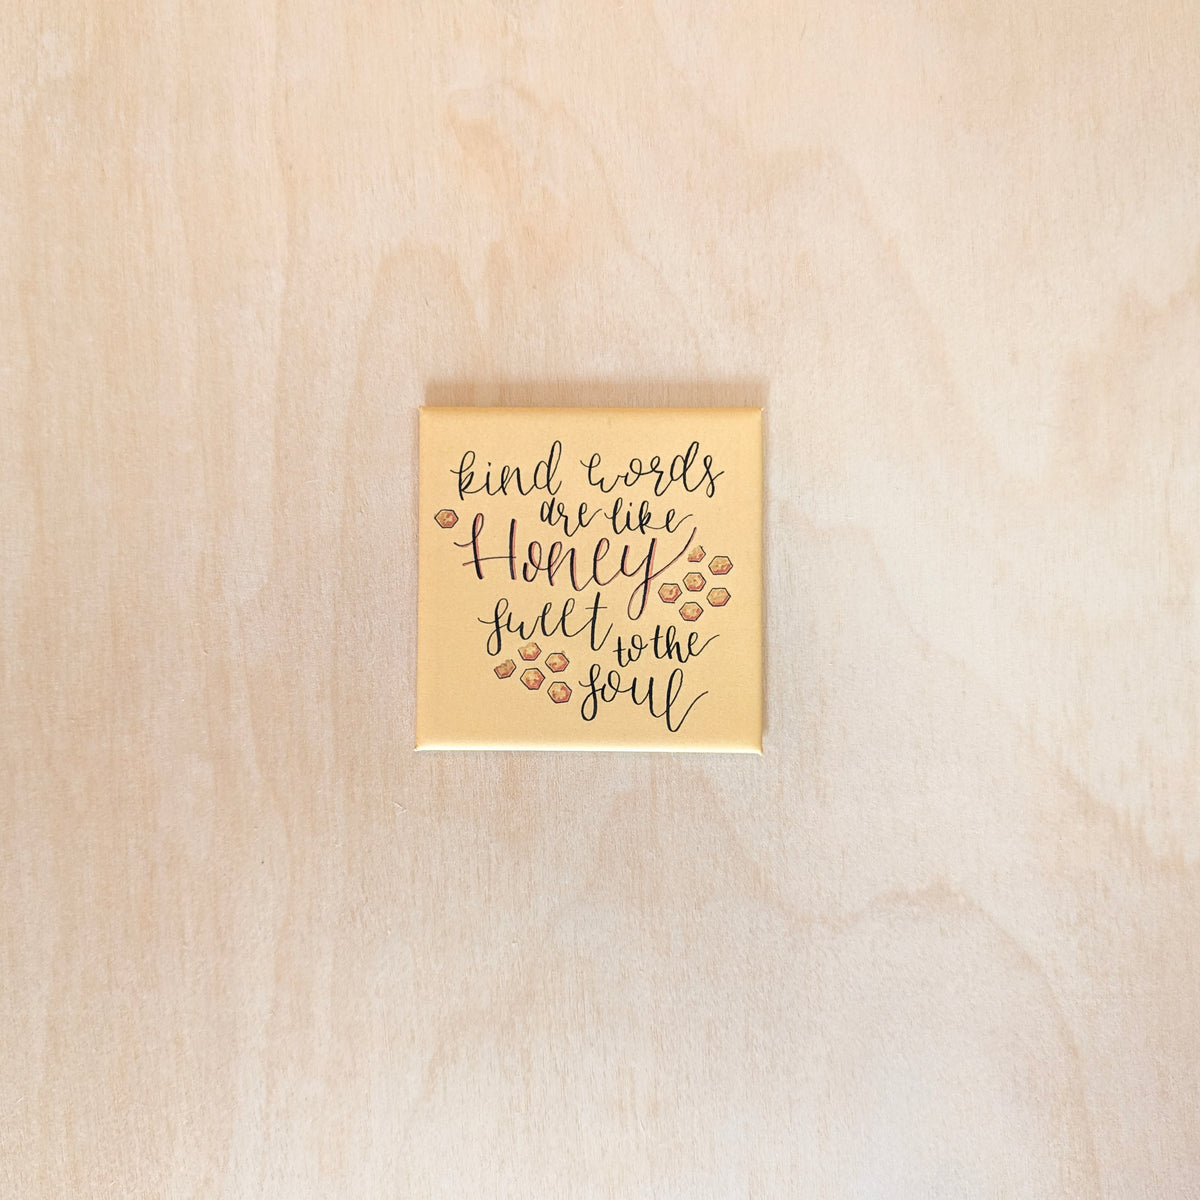 kind words
are like
Honey
sweet
to the
soul